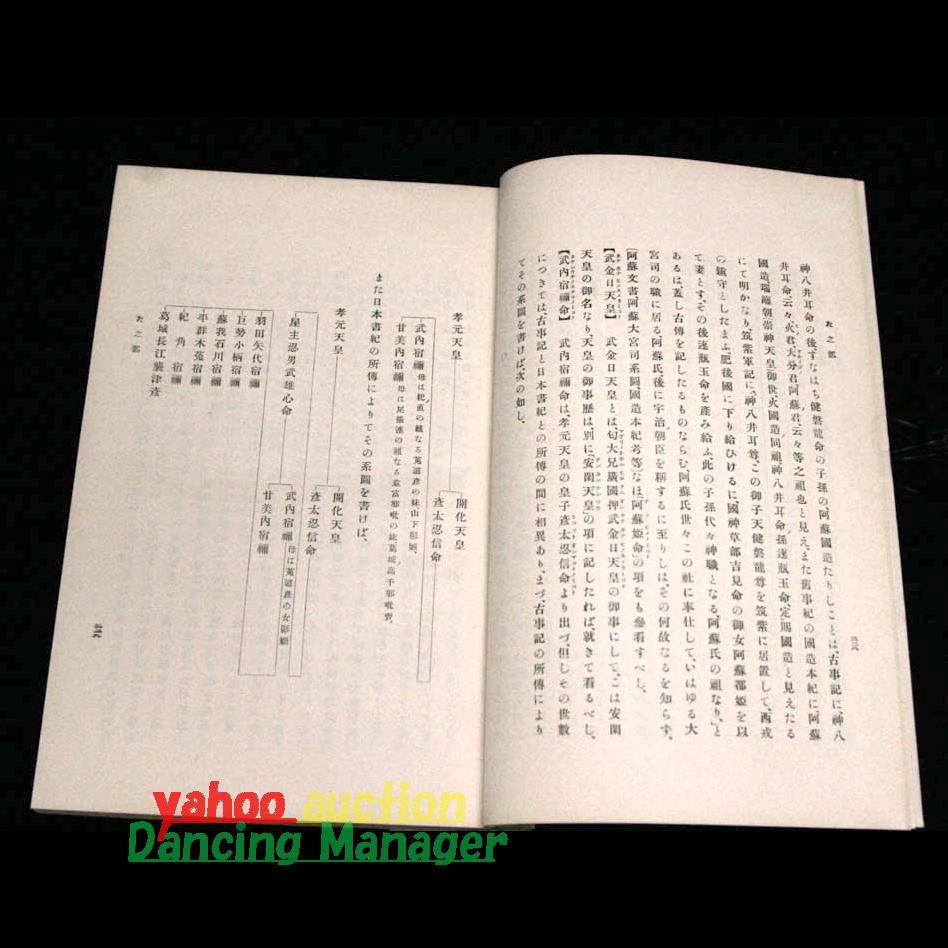 た之部
神八井耳命の後、すなはち健磐龍命の子孫の阿蘇國造たりしことは、古事記に、神八
井耳命云々、火君、大分君、阿蘇君、云々等之祖也と見え、また舊事紀の國造本紀に、阿蘇
國造瑞籬朝崇神天皇御世、火國造同祖神八井耳命孫速瓶玉命、定賜國造と見えたる
にて明かなり、筑紫軍記に、神八井耳尊、この御子天健磐龍尊を筑紫に居置して、西戎
の鎭守としたまふ、肥後國に下り給ひけるに、國神草部吉見命の御女阿蘇都姫を以
て妻とす、その後速瓶玉命を產み給ふ、此の子孫代々神職となる阿蘇氏の祖なり、と
あるは、蓋し古傳を記したるものならむ、阿蘇氏世々この社に奉仕して、いはゆる大
宮司の職に居る阿蘇氏、後に宇治朝臣を稱するに至りしは、その何故なるを知らず、
[阿蘇文書阿蘇大宮司系圖、國造本紀考等]なほ、「阿蘇姫命」の項をも參看すべし、
【武金日天皇】 武金日天皇とは、勾大兄廣國押武金日天皇の御事にして、こは安閑
天皇の御名なり、天皇の御事歴は、別に「安閑天皇」の項に記したれば、就きて看るべし、
【武內宿禰命】 武內宿禰命は、孝元天皇の皇子彥太忍信命より出づ、但しその世數
につきては、古事記と日本書紀との所傳の間に相異あり、まづ、古事記の所傳により
てその系圖を書けば、次の如し、
孝元天皇
開化天皇
彥太忍信命
武內宿禰 母は紀直の祖なる菟道彥の妹山下影姬、
甘美內宿禰 母は尾張連の祖なる意富那毗の妹葛城高千那毗賣、
また日本書紀の所傳によりてその系圖を書けば、
孝元天皇
開化天皇
彥太忍信命
屋主忍男武雄心命
武內宿禰 母は菟道彥の女影媛
甘美內宿禰
羽田矢代宿禰
巨勢小柄宿禰
蘇我石川宿禰
平群木菟宿禰
紀角宿禰
葛城長江襲津彥
た之部
yahoo auction
Dancing Manager